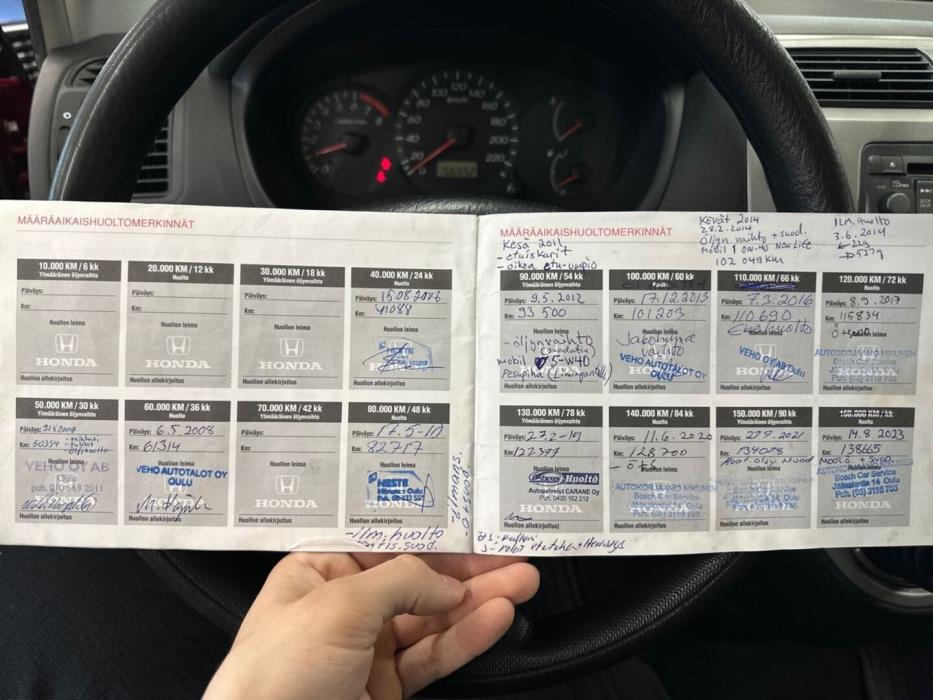 MÄÄRÄAIKAISHUOLTOMERKINNÄT
10.000 KM / 6 kk
Ylimääräinen öljynvaihto
Päiväys:
Km:
Huollon leima
HONDA
Huollon allekirjoitus
20.000 KM / 12 kk
Huolto
Päiväys:
Km:
Huollon leima
HONDA
Huollon allekirjoitus
30.000 KM / 18 kk
Ylimääräinen öljynvaihto
Päiväys:
Km:
Huollon leima
HONDA
Huollon allekirjoitus
40.000 KM / 24 kk
Huolto
Päiväys: 15.08.2006
Km: 41088
Huollon leima
NESTE
HONDA
Huollon allekirjoitus
50.000 KM / 30 kk
Ylimääräinen öljynvaihto
Päiväys:
Km: 50334
VEHO OY AB
Oulu
puh. 010 569 2011
Huollon allekirjoitus
60.000 KM / 36 kk
Huolto
Päiväys: 6.5.2008
Km: 61314
Huollon leima
VEHO AUTOTALOT OY
OULU
Huollon allekirjoitus
70.000 KM / 42 kk
Ylimääräinen öljynvaihto
Päiväys:
Km:
Huollon leima
HONDA
Huollon allekirjoitus
80.000 KM / 48 kk
Huolto
Päiväys: 17.5-10
Km: 82717
Huollon leima
NESTE
Huollon allekirjoitus
-ilmans.
-ö suod.
-ilm. huolto
MÄÄRÄAIKAISHUOLTOMERKINNÄT
Kesä 2011
- etuiskarit
- oikea etu-umpio
Kevät 2014
28.2.2014
Öljyn vaihto + suod.
Mobil 1 0W-40 New Life
102 049 KM
ILM. Huolto
3.6.2014
90.000 KM / 54 kk
Ylimääräinen öljynvaihto
Päiväys: 9.5.2012
Km: 93 500
-öljynvaihto
mobil 5-W40
Huollon allekirjoitus
100.000 KM / 60 kk
Huolto
Päiväys: 17.12.2015
Km: 101203
Huollon leima
Jakohihna
vaihto
VEHO AUTOTALOT OY
OULU
Huollon allekirjoitus
110.000 KM / 66 kk
Päiväys: 7.3.2016
Km: 110690
Huollon leima
VEHO OY AB
Oulu
Huollon allekirjoitus
120.000 KM / 72 kk
Huolto
Päiväys: 8.9.2017
Km: 115834
AUTOKORJAAMO NIKUNEN
Bosch Car Service
Puh. (08) 3116 785
Huollon allekirjoitus
130.000 KM / 78 kk
Ylimääräinen öljynvaihto
Päiväys: 27.2-19
Km: 122377
Huolto
Autopalvelut CARANE Oy
Puh. 0400 162 212
HONDA
Huollon allekirjoitus
140.000 KM / 84 kk
Huolto
Päiväys: 11.6.2020
Km: 128700
AUTOKORJAAMO NIKUNEN
Bosch Car Service
HONDA
Huollon allekirjoitus
150.000 KM / 90 kk
Ylimääräinen öljynvaihto
Päiväys: 27.9.2021
Km: 134028
AUTOKORJAAMO NIKUNEN
Bosch Car Service
HONDA
Huollon allekirjoitus
Huolto
Päiväys: 14.8 2023
Km: 138665
Bosch Car Service
HONDA
Huollon allekirjoitus